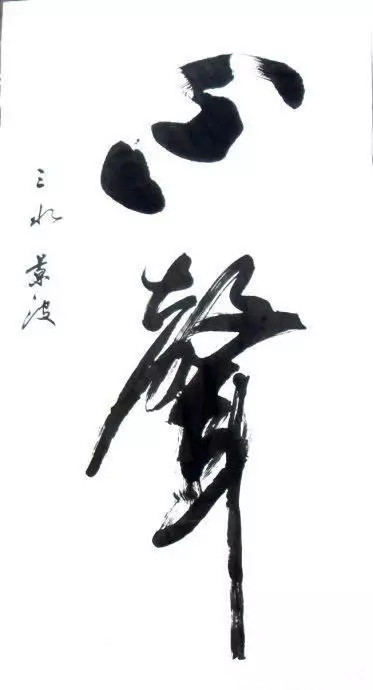 心聲
三水 景波